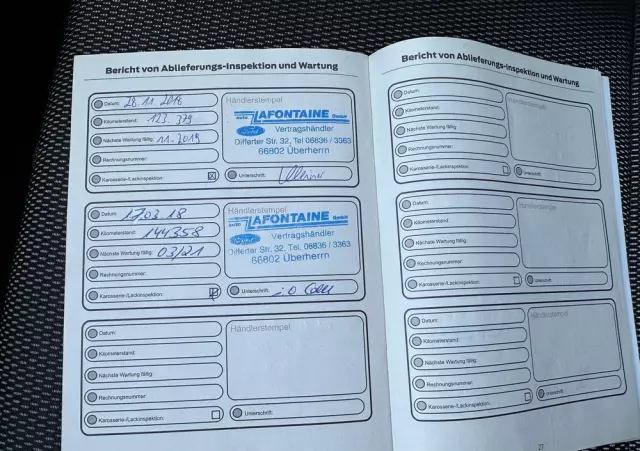 Bericht von Ablieferungs-Inspektion und Wartung
Datum: 28.11.2018
Kilometerstand: 123.379
Nächste Wartung fällig: 11.2019
Rechnungsnummer:
Karosserie-/Lackinspektion:
Händlerstempel
auto LAFONTAINE GmbH
Ford Vertragshändler
Differter Str. 32, Tel. 06836 / 3363
66802 Überherrn
Unterschrift:
Datum: 17.03.18
Kilometerstand: 144358
Nächste Wartung fällig: 03/21
Rechnungsnummer:
Karosserie-/Lackinspektion:
Händlerstempel
auto LAFONTAINE GmbH
Ford Vertragshändler
Differter Str. 32, Tel. 06836 / 3363
66802 Überherrn
Unterschrift:
Datum:
Kilometerstand:
Nächste Wartung fällig:
Rechnungsnummer:
Karosserie-/Lackinspektion:
Händlerstempel
Unterschrift:
Bericht von Ablieferungs-Inspektion und Wartung
Datum:
Kilometerstand:
Nächste Wartung fällig:
Rechnungsnummer:
Karosserie-/Lackinspektion:
Händlerstempel
Unterschrift:
Datum:
Kilometerstand:
Nächste Wartung fällig:
Rechnungsnummer:
Karosserie-/Lackinspektion:
Händlerstempel
Unterschrift:
Datum:
Kilometerstand:
Nächste Wartung fällig:
Rechnungsnummer:
Karosserie-/Lackinspektion:
Händlerstempel
Unterschrift: